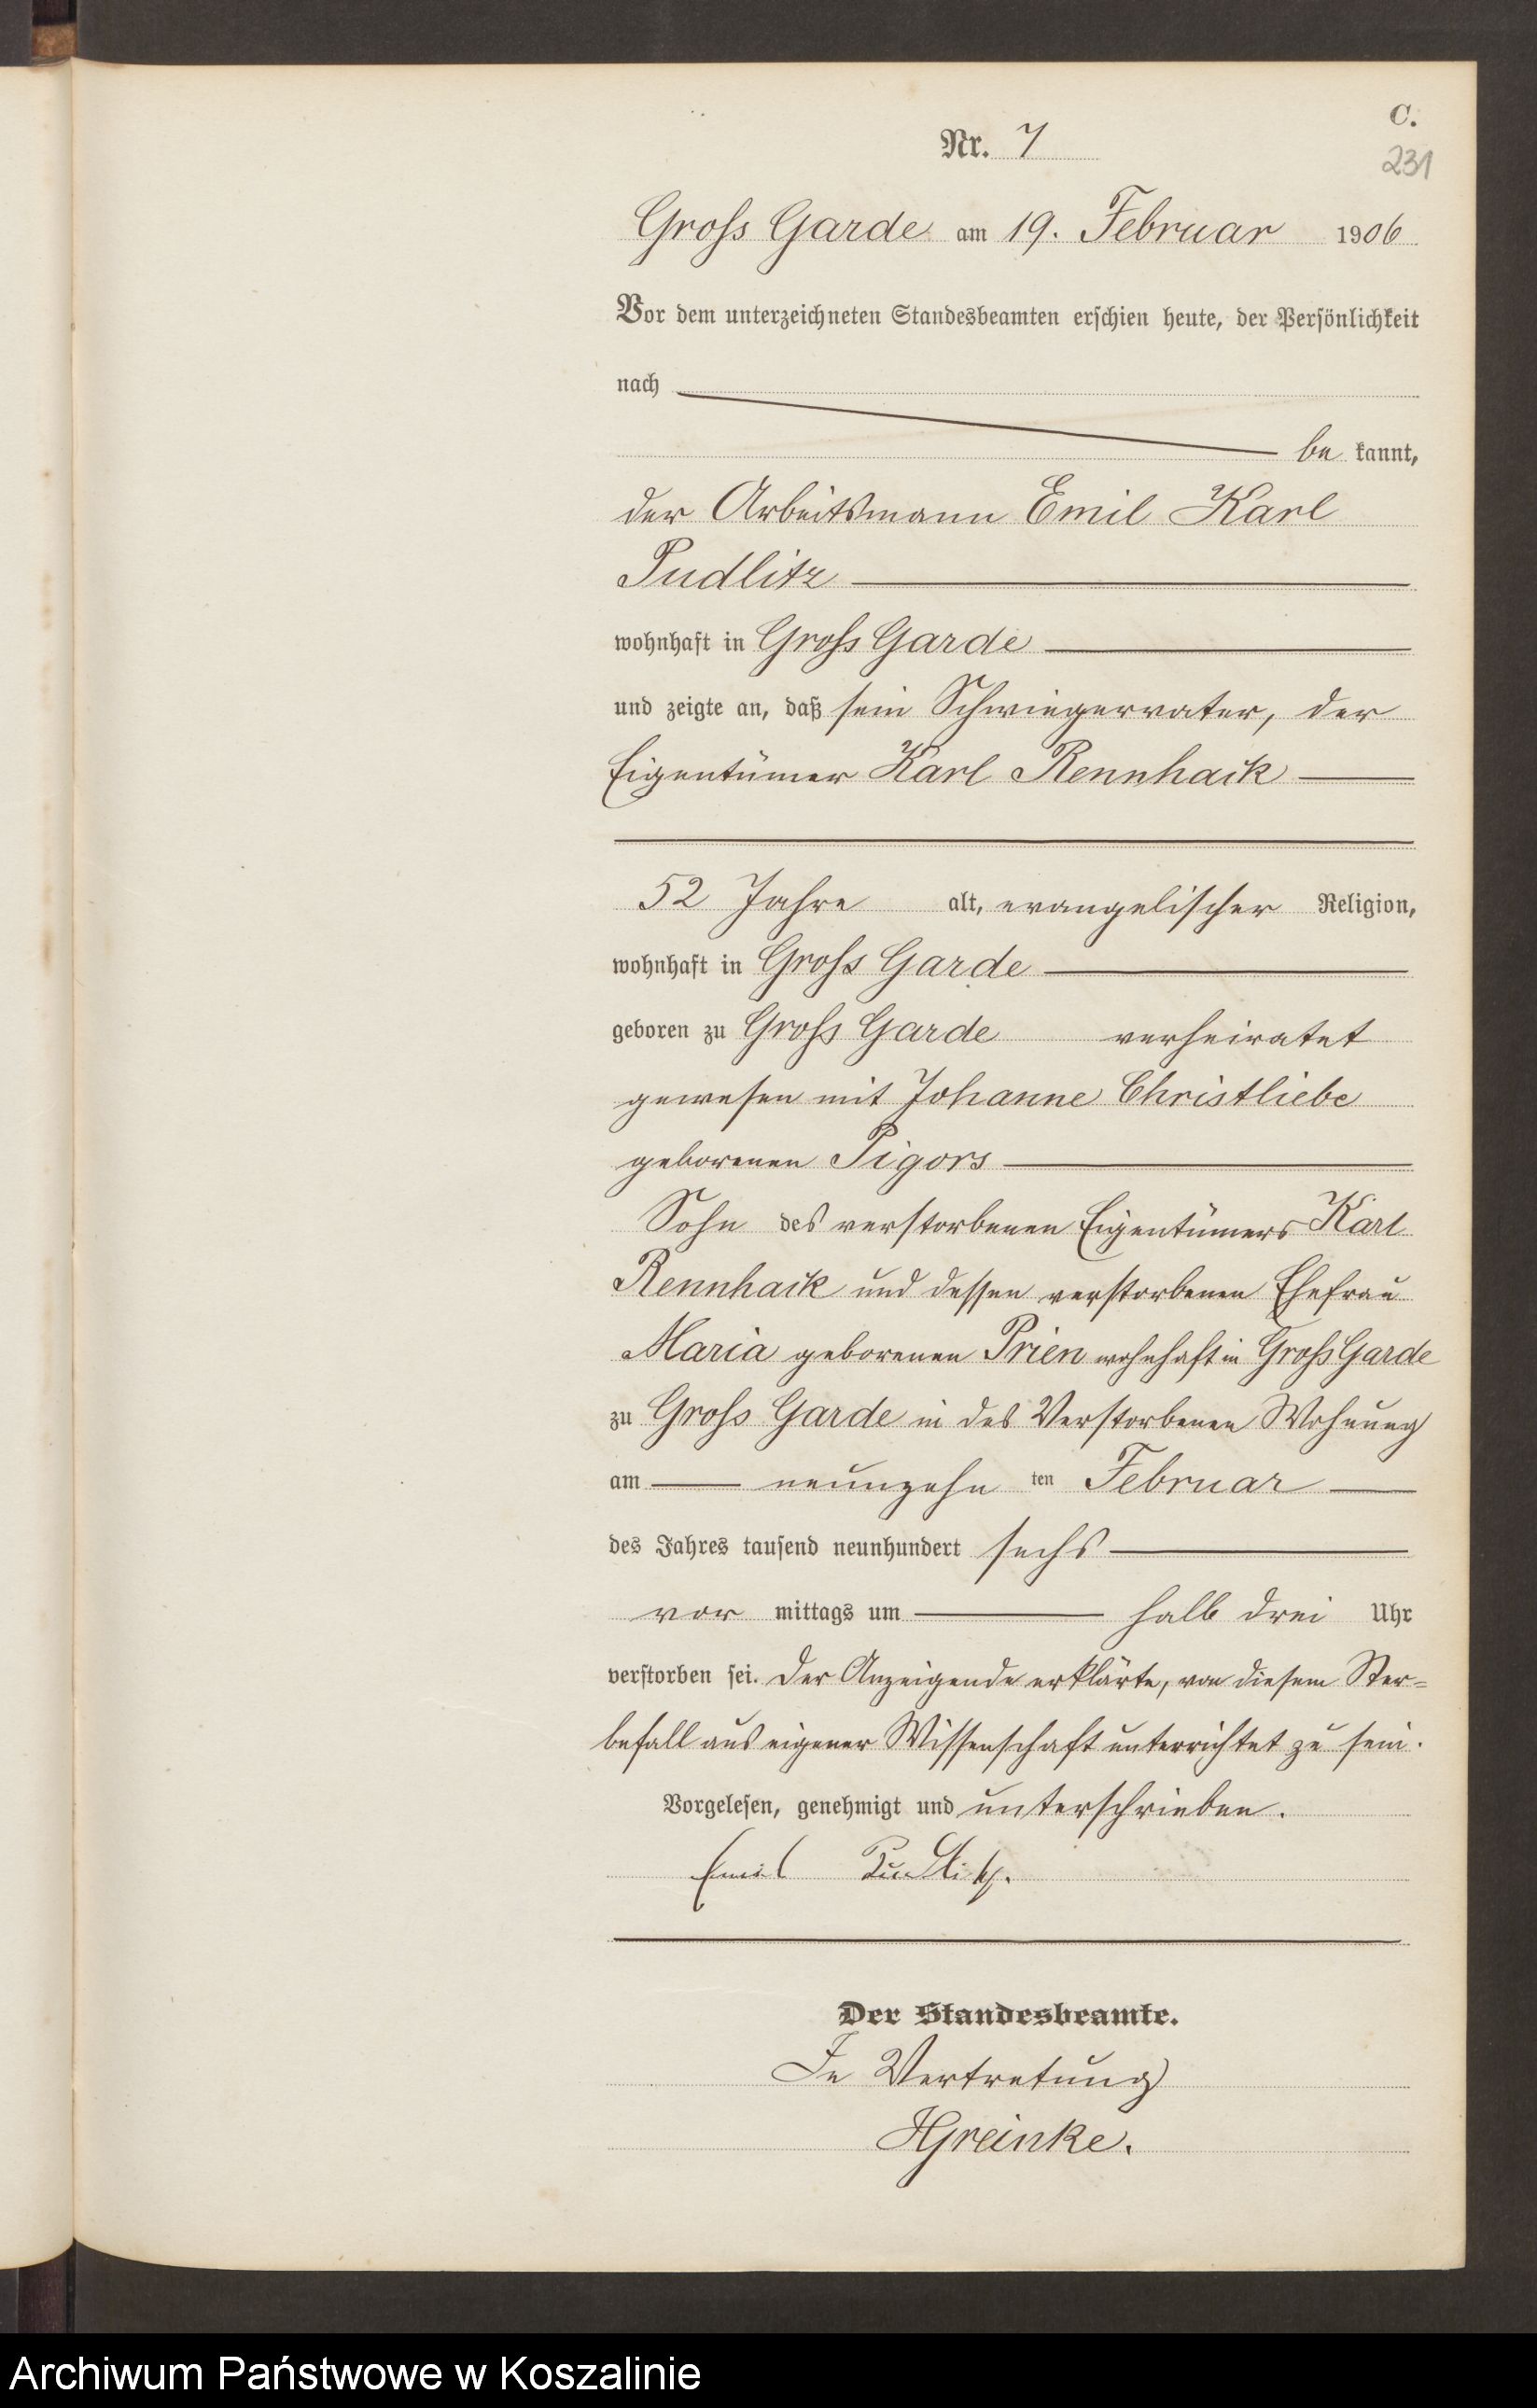 C.
Nr. 7
231
Gross Garde am 19. Februar 1906
Vor dem unterzeichneten Standesbeamten erschien heute, der Persönlichkeit
nach
be kannt,
der Arbeitsmann Emil Karl
Pudlitz
wohnhaft in Gross Garde
und zeigte an, daß sein Schwiegervater, der
Eigentümer Karl Rennhack
52 Jahre alt, evangelischer Religion,
wohnhaft in Gross Garde
geboren zu Gross Garde verheiratet
gewesen mit Johanne Christliebe
geborenen Pigors
Sohn des verstorbenen Eigentümers Karl
Rennhack und dessen verstorbenen Ehefrau
Maria geborenen Prien wohnhaft in Gross Garde
zu Gross Garde in des Verstorbenen Wohnung
am neunzehn ten Februar
des Jahres tausend neunhundert sechs
vor mittags um halb drei Uhr
verstorben sei. Der Anzeigende erklärte, von diesem Ster=
befall aus eigener Wissenschaft unterrichtet zu sein.
Vorgelesen, genehmigt und unterschrieben.
Emil Pudlitz.
Der Standesbeamte.
In Vertretung
HGreinke.
Archiwum Państwowe w Koszalinie